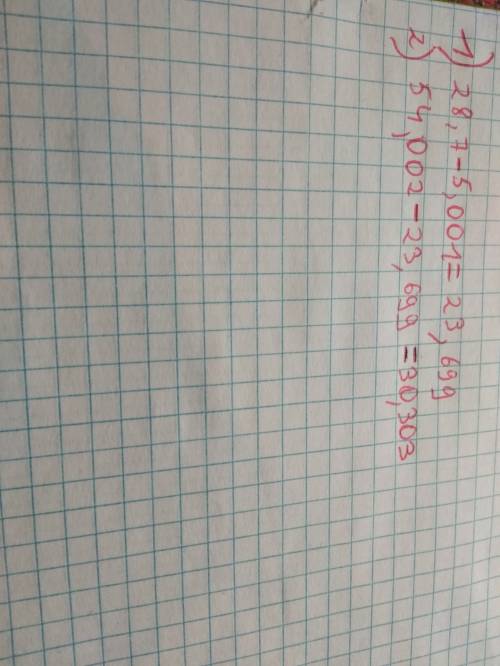 1) 28,7-5,001=23,699
2) 54,002-23,699=30,303